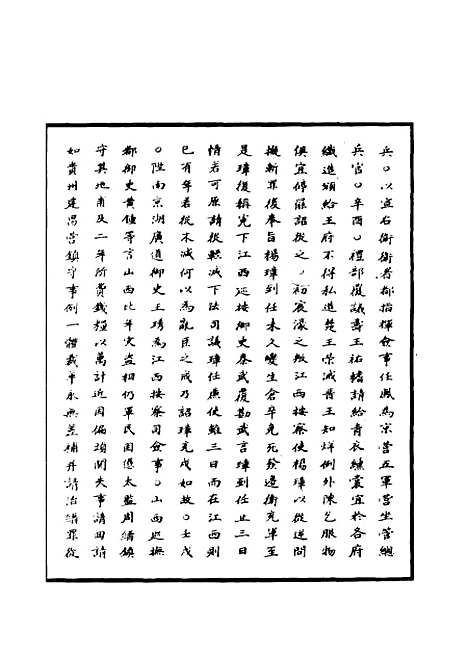 兵○以宣右衛衛署都指揮僉事任鳳為京營五軍營坐營總
兵官○辛酉○禮部覆議壽王祐榰請給青衣練裳宜於各府
織造頒給王府不得私造楚王榮㳦晉王知烊例外陳乞服物
俱宜停罷詔從之○初宸濠之叛江西按察使楊璋以從逆問
擬斬罪復奉旨楊璋到任未久變生倉卒免死發邊衛充軍至
是璋復稱冤下江西巡按御史秦武覆勘武言璋到任止三日
情若可原請從輕減下法司議璋任廉使雖三日而在江西則
已有年若從末減何以為亂臣之戒乃詔璋充戍如故○壬戌
○陞南京湖廣道御史王琇為江西按察司僉事○山西巡撫
都御史黃傎等言山西比年災盜相仍軍民困進太監周縉鎮
守其地甫及二年所費錢糧以萬計近因偏頭關失事請回請
如貴州建昌營鎮守事例一體裁革永無差補并請治縉罪從